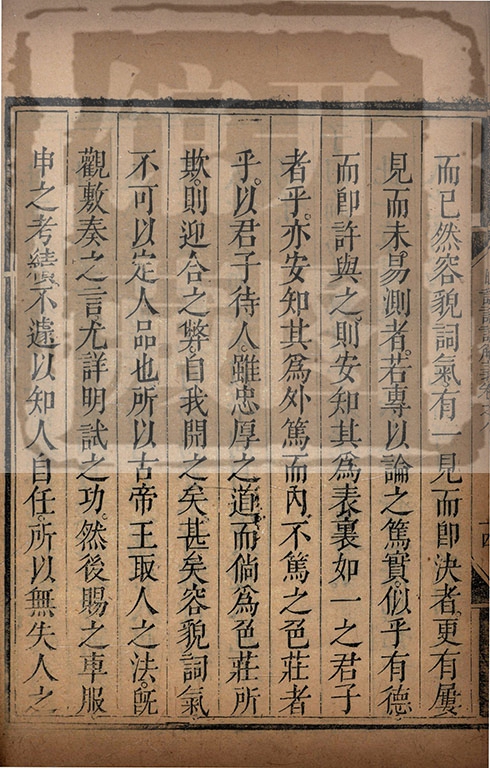 而已然容貌詞氣有一見而卽決者更有屢
見而未易測者若專以論之篤實似乎有德
而卽許與之則安知其為表裏如一之君子
者乎亦安知其為外篤而內不篤之色莊者
乎以君子待人雖忠厚之道而倘為色莊所
欺則迎合之弊自我開之矣甚矣容貌詞氣
不可以定人品也所以古帝王取人之法旣
觀敷奏之言尤詳明試之功然後賜之車服
申之考績不遽以知人自任所以無失人之